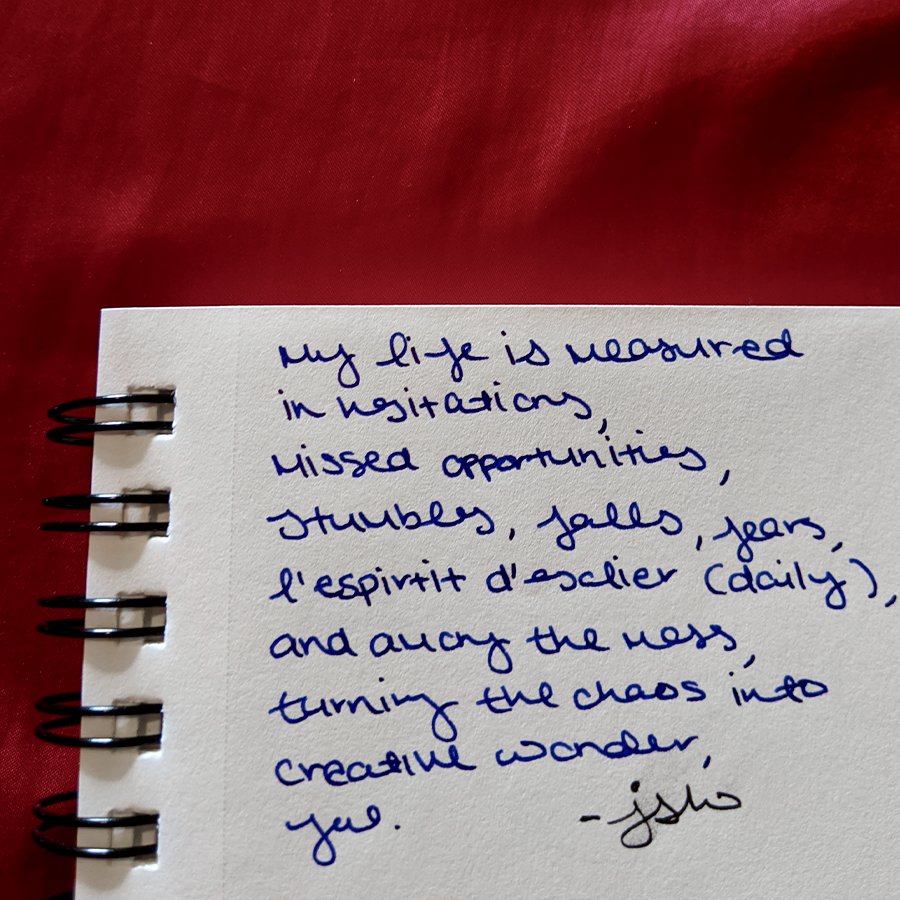 My life is measured
in hesitations,
missed opportunities,
stumbles, falls, fears,
l'espirtit d'esclier (daily),
and among the mess,
turning the chaos into
creative wonder,
you.
-jslw